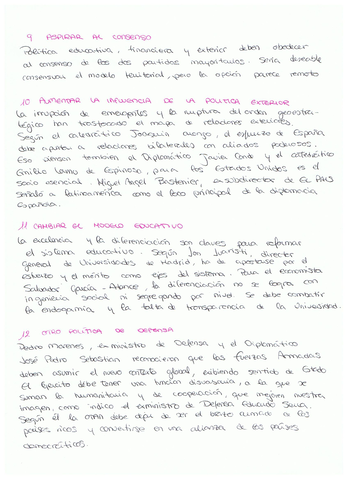 9 ASPIRAR AL CONSENSO
Política educativa, financiera y exterior deben obedecer
al consenso de los dos partidos mayoritarios. Sería deseable
consensuar el modelo territorial, pero la opción parece remota
10 AUMENTAR LA INFLUENCIA DE LA POLITICA EXTERIOR
La irrupción de emergentes y la ruptura del orden geoestra-
tégico han trastocado el mapa de relaciones exteriores.
Según el catedrático Joaquín, el esfuerzo de España
debe apuntar a relaciones bilaterales con aliados poderosos.
Eso piensan también el Diplomático Javier Conde y el catedrático
Emilio Lamo de Espinosa, para los Estados Unidos es el
socio esencial. Miguel Angel Bastenier, exsubdirector de EL PAIS
señaló a latinoamerica como el foco principal de la diplomacia
Española.
11 CAMBIAR EL MODELO EDUCATIVO
La excelencia y la diferenciación son claves para reformar
el sistema educativo. Según Jon Juaristi, director
general de Universidades de Madrid, ha de apostarse por el
esfuerzo y el mérito como ejes del sistema. Para el economista
Salvador García-Atance, la diferenciación no se logra con
ingeniería social ni segregando por nivel. Se debe combatir
la endogamia, y la falta de transparencia de la Universidad.
12 OTRO POLITICA DE DEFENSA
Pedro Morenés, exministro de Defensa y el Diplomático
José Pedro Sebastián reconocieron que las fuerzas Armadas
deben asumir el nuevo contexto global, exibiendo sentido de Estado
El Ejército debe tener una función disuasoria, a la que se
suman la humanitaria y de cooperación, que mejoren nuestra
imagen, como indico el exministro de Defensa Eduardo Serra.
Según él la OTAN debe dejar de ser el brazo armado de los
países ricos y convertirse en una alianza de los países
democráticos.